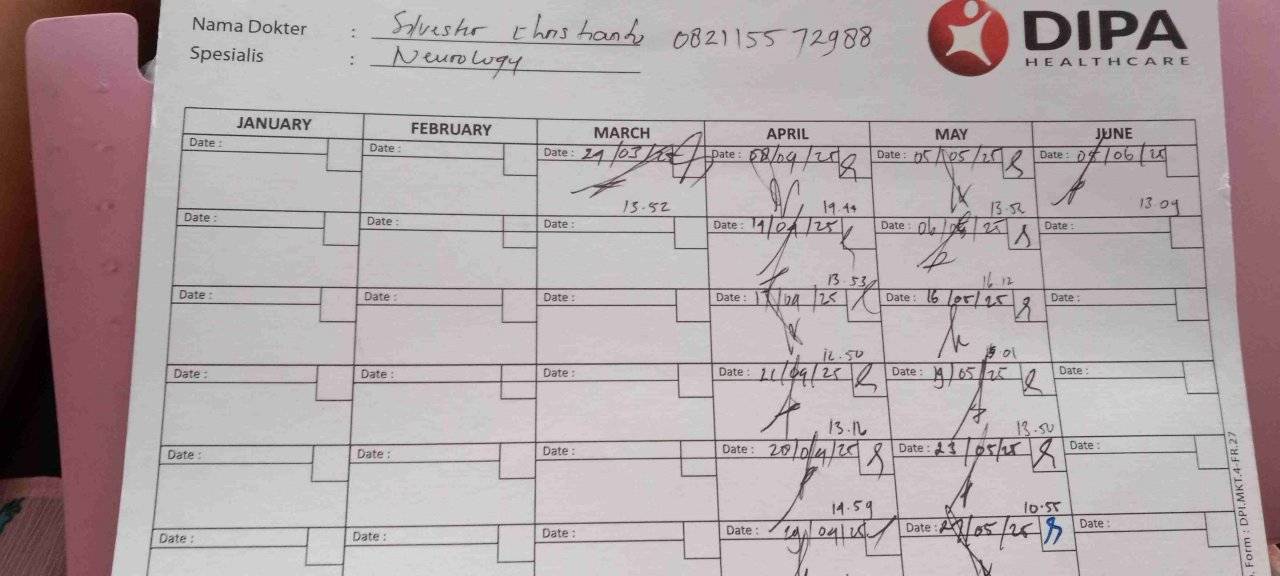 Nama Dokter : Silvester Christianto 082115572988
Spesialis : Neurology
DIPA
HEALTHCARE
JANUARY FEBRUARY MARCH APRIL MAY JUNE
Date : Date : Date : 24/03/25 Date : 08/04/25 Date : 05/05/25 Date : 04/06/25
13.52 14.44 13.52 13.09
Date : Date : Date : Date : 14/04/25 Date : 06/05/25 Date :
13.53 16.12
Date : Date : Date : Date : 17/04/25 Date : 16/05/25 Date :
12.50 15.01
Date : Date : Date : Date : 21/04/25 Date : 19/05/25 Date :
13.16 13.50
Date : Date : Date : Date : 28/04/25 Date : 23/05/25 Date :
14.59 10.55
Date : Date : Date : Date : 29/04/25 Date : /05/25 Date :
Form : DPI.MKT.4-FR.27